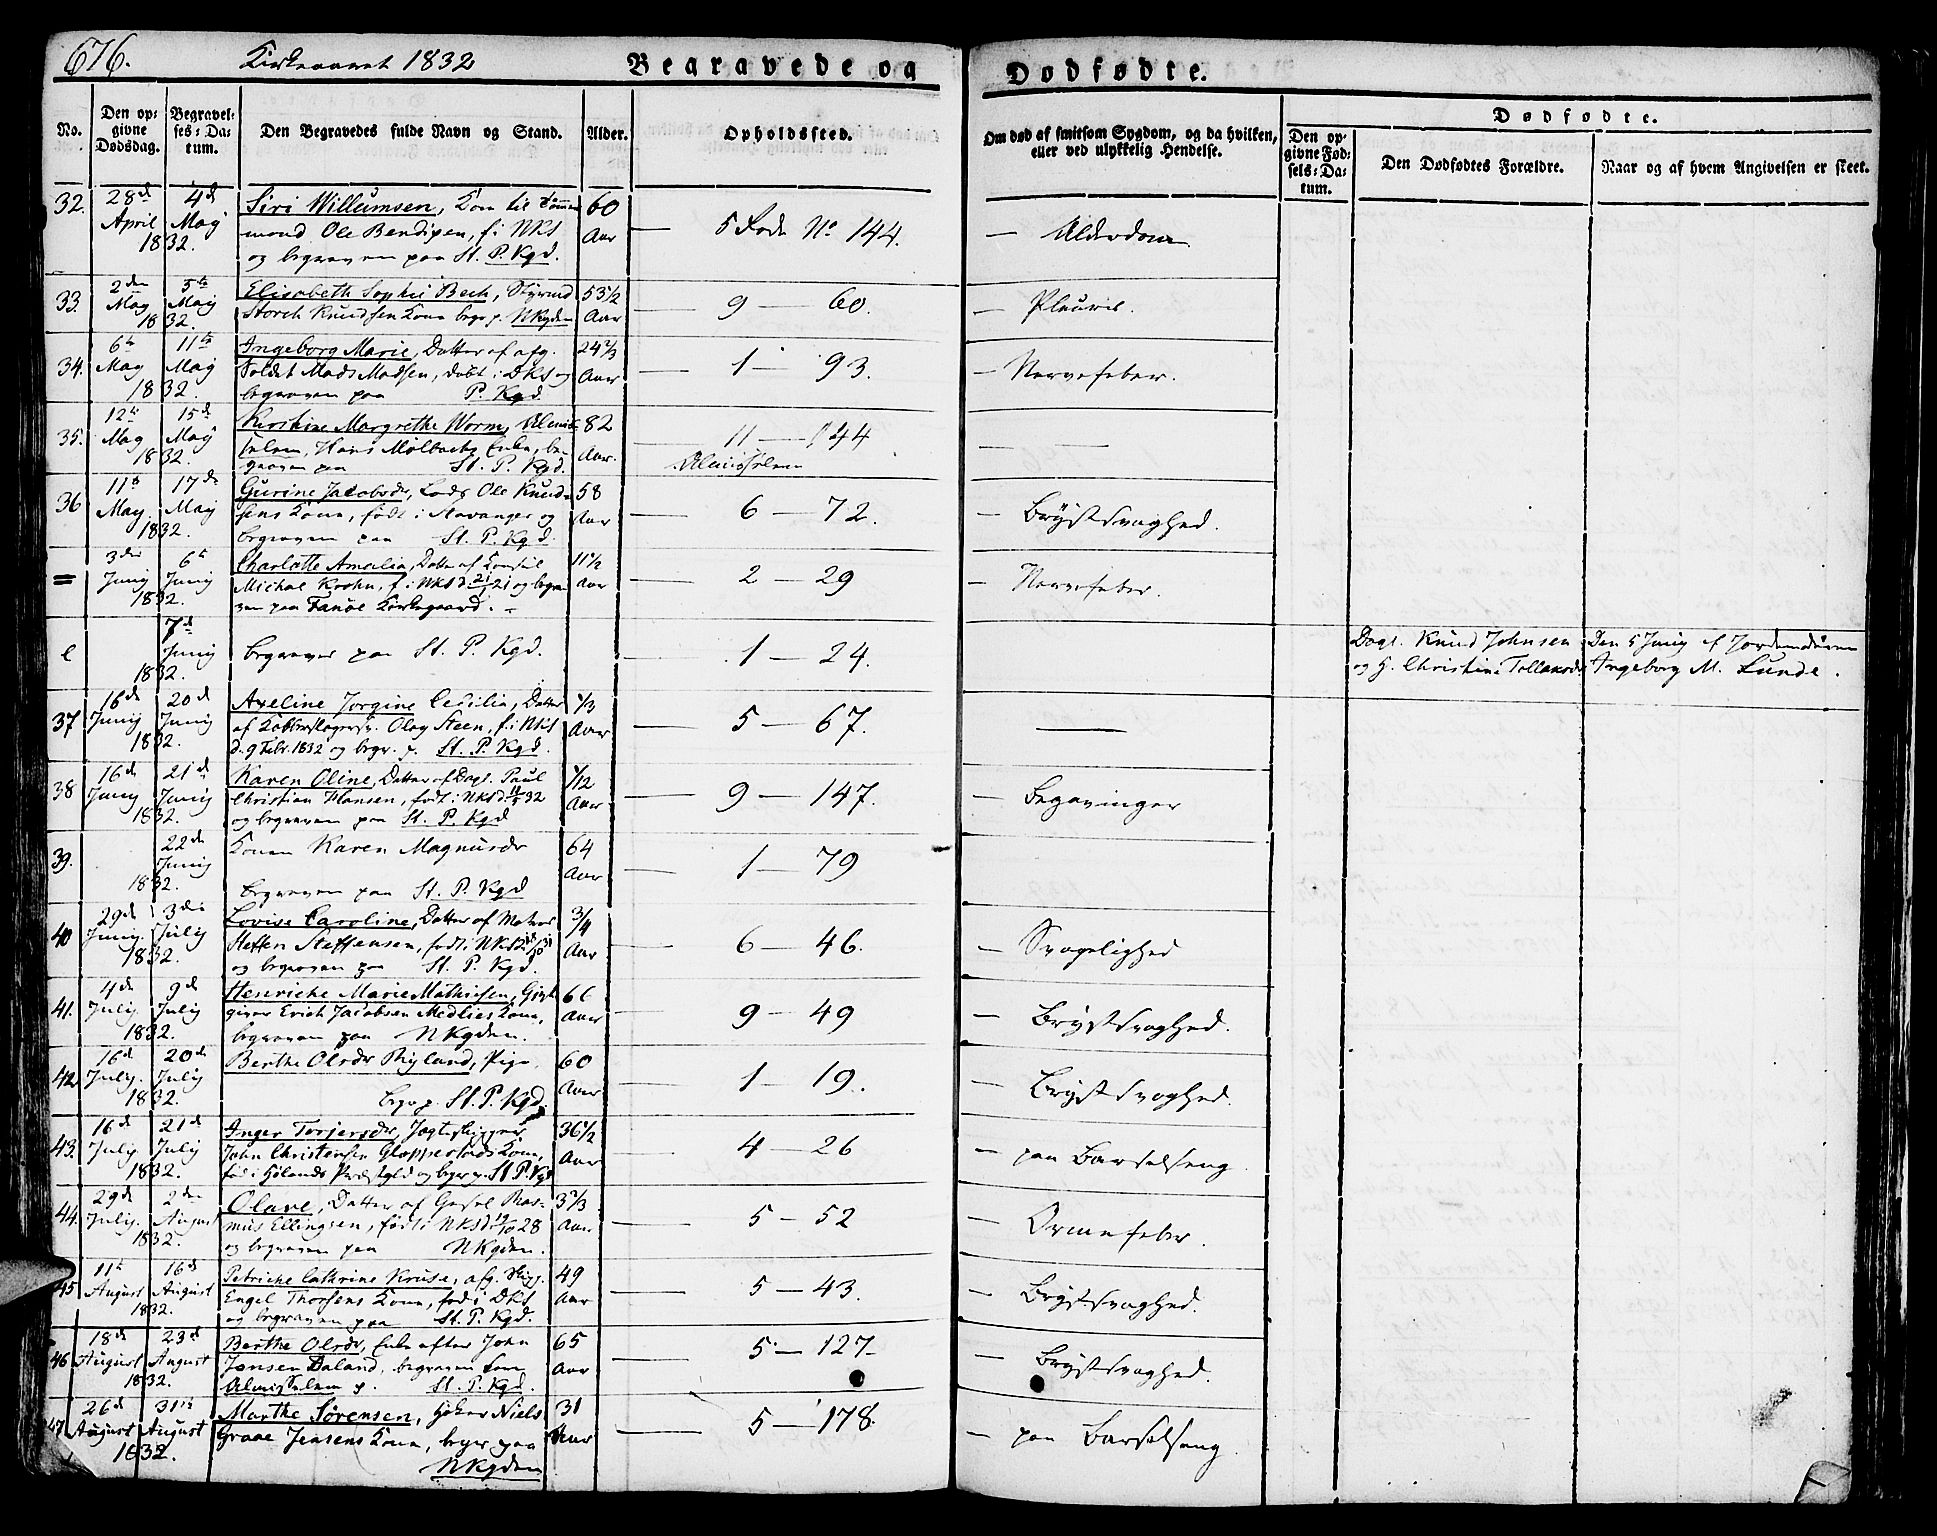 676.
Kirkeaaret 1832
Begravede og
Dødfødte.
No.
Den op-
givne
Dødsdag.
Begravel-
ses-Da-
tum.
Den Begravedes fulde Navn og Stand.
Alder.
Opholdssted.
Om død af smitsom Sygdom, og da hvilken,
eller ved ulykkelig Hendelse.
Dødfødte.
Den op-
givne Fød-
sels-Da-
tum.
Den Dødfødtes Forældre.
Naar og af hvem Angivelsen er skeet.
32. 28de April 1832. 4de May
Siri Willumsen, Kone til Tømmer
mand Ole Bendixen, f. i NKS
og begraven paa St. P. Kgd.
60 Aar
5 Rode No 144.
Alderdom
33. 2den May 1832. 5te May
Elisabeth Sophie Bech, Styrmd
Storch Knudsen Kone begr. p. NKgden
53 1/2 Aar
9 — 60.
Pleuris.
34. 6te May 1832. 11te May
Ingeborg Marie, Datter af afg.
Soldat Mads Madsen, døbt i DKS og
begraven paa P. Kgd.
24 2/3 Aar
1 — 93.
Nervefeber.
35. 12te May 1832. 15de May
Kirstine Margrethe Worm, Almis-
selem, Hans Mølbachs Enke, be-
graven paa St. P. Kgd.
82 Aar.
11 — 144
Almisselem
36 11te May. 1832. 17de May
Gurine Jacobsdr, Lods Ole Knud-
sens Kone, født i Stavanger og
begraven paa St. P. Kgd.
58 Aar
6 — 72.
Brystsvaghed.
= 3die Juny 1832. 6te Juny
Charlotte Amalia, Datter af Konsul
Michal Krohn, f. i NKS d. 21 og begra-
ven paa Fanøe Kirkegaard.
11 1/2 Aar
2 — 29
Nervefeber.
e 7de Juny 1832.
begraven paa St. P. Kgd.
1 — 24.
Dagl. Knud Johnsen
og H. Christine Tollaksdr
Den 5 Juny af Jordemoderen
Ingeborg M. Lunde.
37 16de Juny 1832. 20de Juny
Axeline Jorgine Cecilia, Datter
af Kobberslagersv. Olay Steen, f. i NKS
d. 9 Febr. 1832 og begr. p. St. P. Kgd.
1/3 Aar
5 — 67.
38 16de Juny 1832. 21de Juny
Karen Oline, Datter af Dagl. Paul
Christian Hansen, født i NKS d. 32
og begraven paa St. P. Kgd
1/12 Aar
9 — 147.
Begavinger
39. 22de Juny 1832.
Konen Karen Magnusdr
begraven paa St. P. Kgd
64 Aar
1 — 79
40 29de Juny 1832. 3die July
Lovise Caroline, Datter af Matros
Steffen Steffensen, født i NKS
og begraven paa St. P. Kgd.
3/4 Aar
6 — 46.
Svagelighed
41. 4de July. 1832. 9de July
Henriche Marie Mathiesen, Gjest-
giver Erich Jacobsen Medlies Kone,
begraven paa NKgden.
66 Aar
9 — 49
Brystsvaghed.
42 16de July. 1832. 20de July
Berthe Olsdr Ryland, Pige.
begr. p. St. P. Kgd
60 Aar
1 — 19.
Brystsvaghed.
43. 16de July 1832. 21de July
Inger Torjersdr, Jagteskipper
John Christensen Gloppestads Kone,
fød i Hølands Præstgld og begr. p. St. P. Kgd
36 1/2 Aar
4 — 26
paa Barselseng.
44. 29de July. 1832. 2den August
Olave, Datter af Gesel Ras-
mus Ellingsen, født i NKS d. 28
og begraven paa NKgden.
3 2/3 Aar.
5 — 52
Ormefeber.
45 11te August 1832. 16de August
Petriche Cathrine Kruse, afg. Skipp.
Engel Thorsens Kone, fød i DKS
og begraven paa St. P. Kgd.
49 Aar
5 — 43.
Brystsvaghed.
46 18de August 1832. 23de August
Berthe Olsdr, Enke efter John
Jansen Daland, begraven som
Almisselem p. St. P. Kgd.
65 Aar
5 — 127
Brystsvaghed.
47 26de August 1832. 31te August
Marthe Sørensen, Høker Niels
Graae Jensens Kone, begr. paa
NKgden
31 Aar
5 — 178.
paa Barselseng.